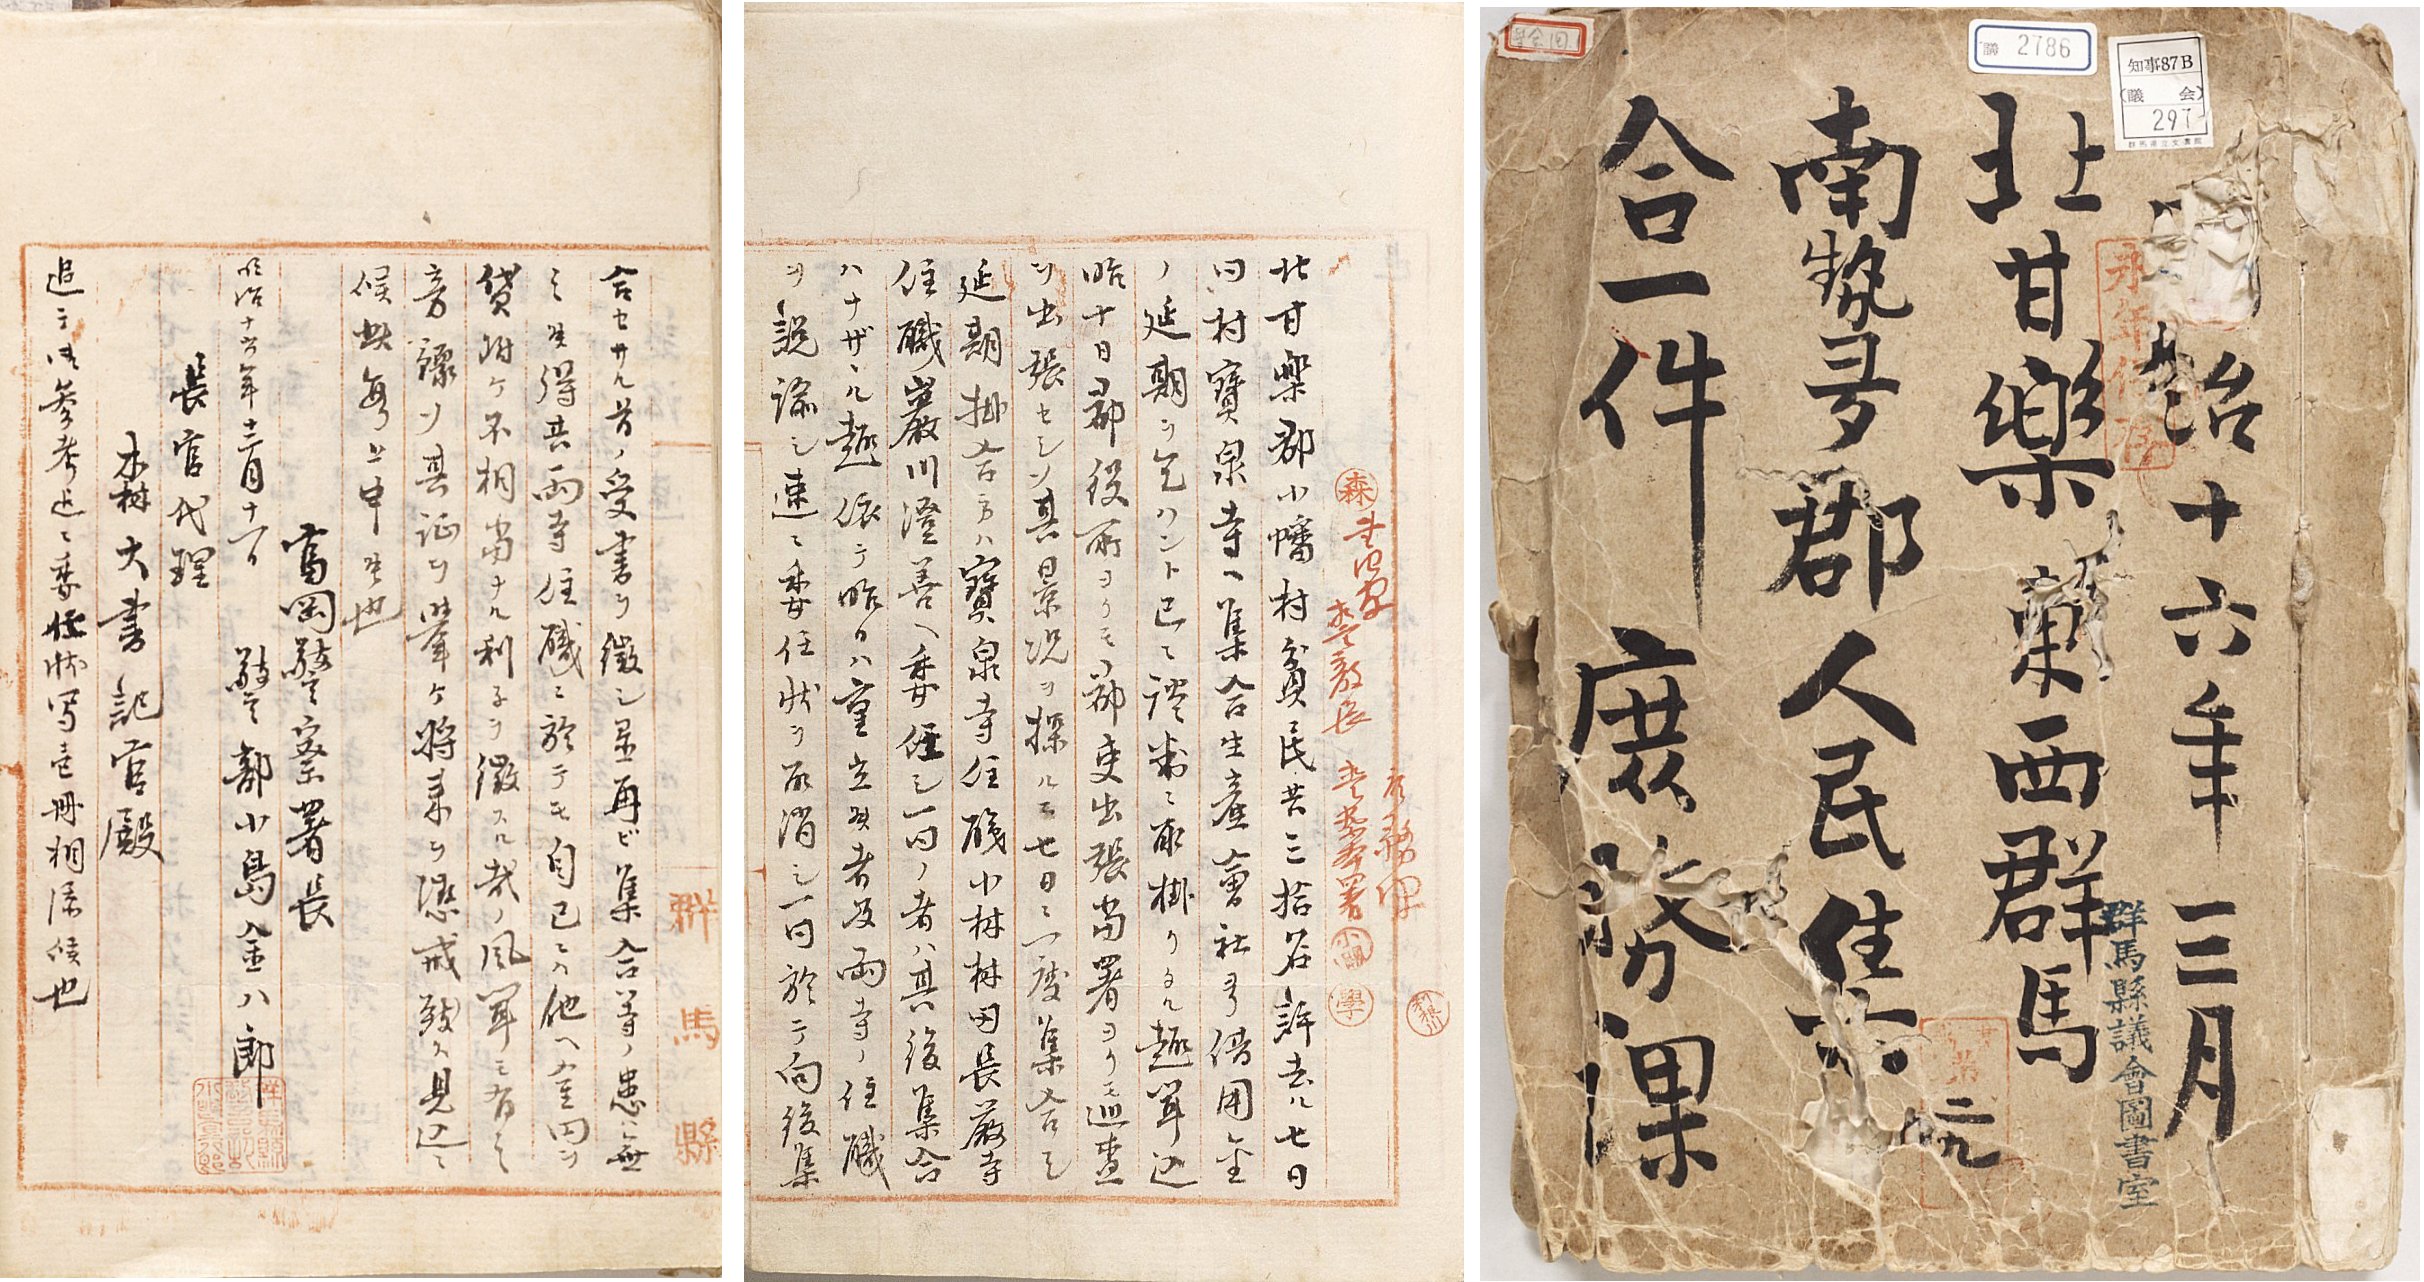 2786
知事87B
(議 会)
297
群馬県立文書館
治十六年三月
北甘樂 東西群馬
南勢多郡人民集
合一件 庶務課
永年保存
群馬縣議會圖書室
共二冊
北甘樂郡小幡村貧民共三拾名許去ル七日
同村寳泉寺ヘ集合生産會社ヨリ借用金
ノ延期ヲ乞ハントシ已ニ談判ニ取掛リタル趣聞込
昨十日郡役所ヨリモ郡吏出張當署ヨリモ巡査
ヲ出張セシメ其景况ヲ探ルニ七日ニ一度集合シ
延期掛合方ハ寳泉寺住職小林林同長嚴寺
住職巖川澄善ヘ委任シ一同ノ者ハ其後集合
ハナサザル趣依テ昨日ハ重立候者及両寺ノ住職
ヲ説諭シ速ニ委任状ヲ取消シ一同於テ向後集
合セサル旨ノ受書ヲ徴シ置再ビ集合等ノ患ハ無
之候得共両寺住職ニ於テモ自己ニ他ヘ金円ヲ
貸附ケ不相當ナル利子ヲ徴スル哉ノ風聞モ有之
旁探リ其証ヲ挙ケ将来ヲ懲戒致ス見込ニ
候此段上申候也
富岡警察署長
明治十六年三月十一日 警部小島金八郎
長官代理
木村大書記官殿
追テ御參考迄ニ委任状写壱冊相添候也
群馬縣